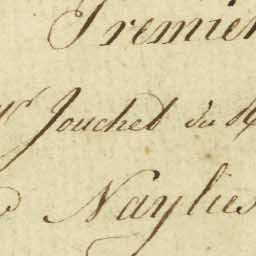 Premier
Mr Jouchet du R
Naylies